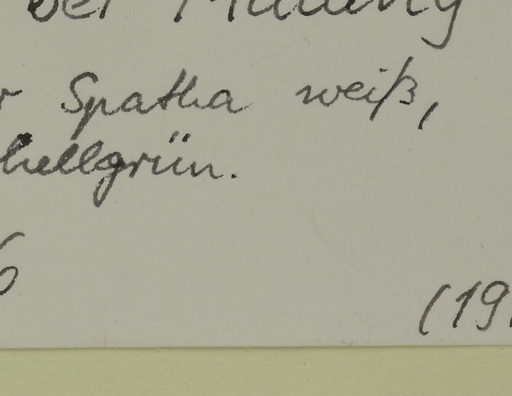 bei
r Spatha weiß,
hellgrün.
6
(19